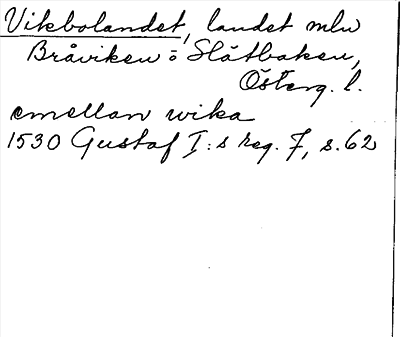 Vikbolandet, landet mln
Bråviken o Slätbaken,
Österg. l.
emellan wika
1530 Gustaf I:s reg. 7, s. 62